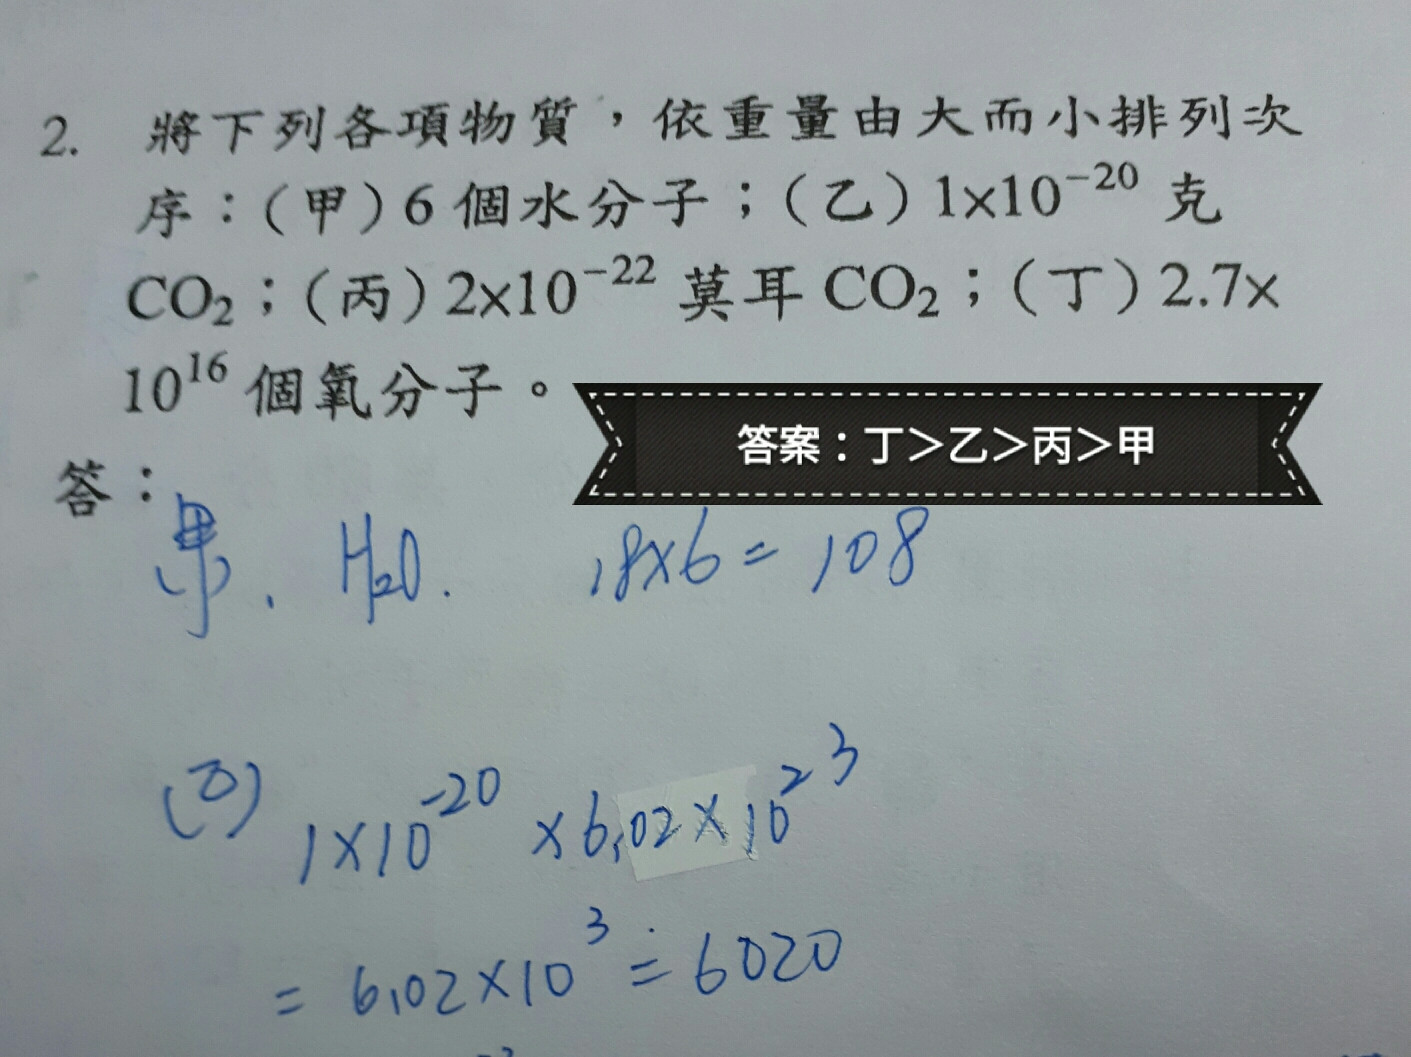 2. 將下列各項物質，依重量由大而小排列次
序：(甲)6 個水分子；(乙)1×10⁻²⁰ 克
CO₂；(丙)2×10⁻²² 莫耳 CO₂；(丁)2.7×
10¹⁶ 個氧分子。
答案：丁＞乙＞丙＞甲
答：
H₂O. 18×6 = 108
(乙) 1×10⁻²⁰ ×6.02×10²³
= 6.02×10³ = 6020